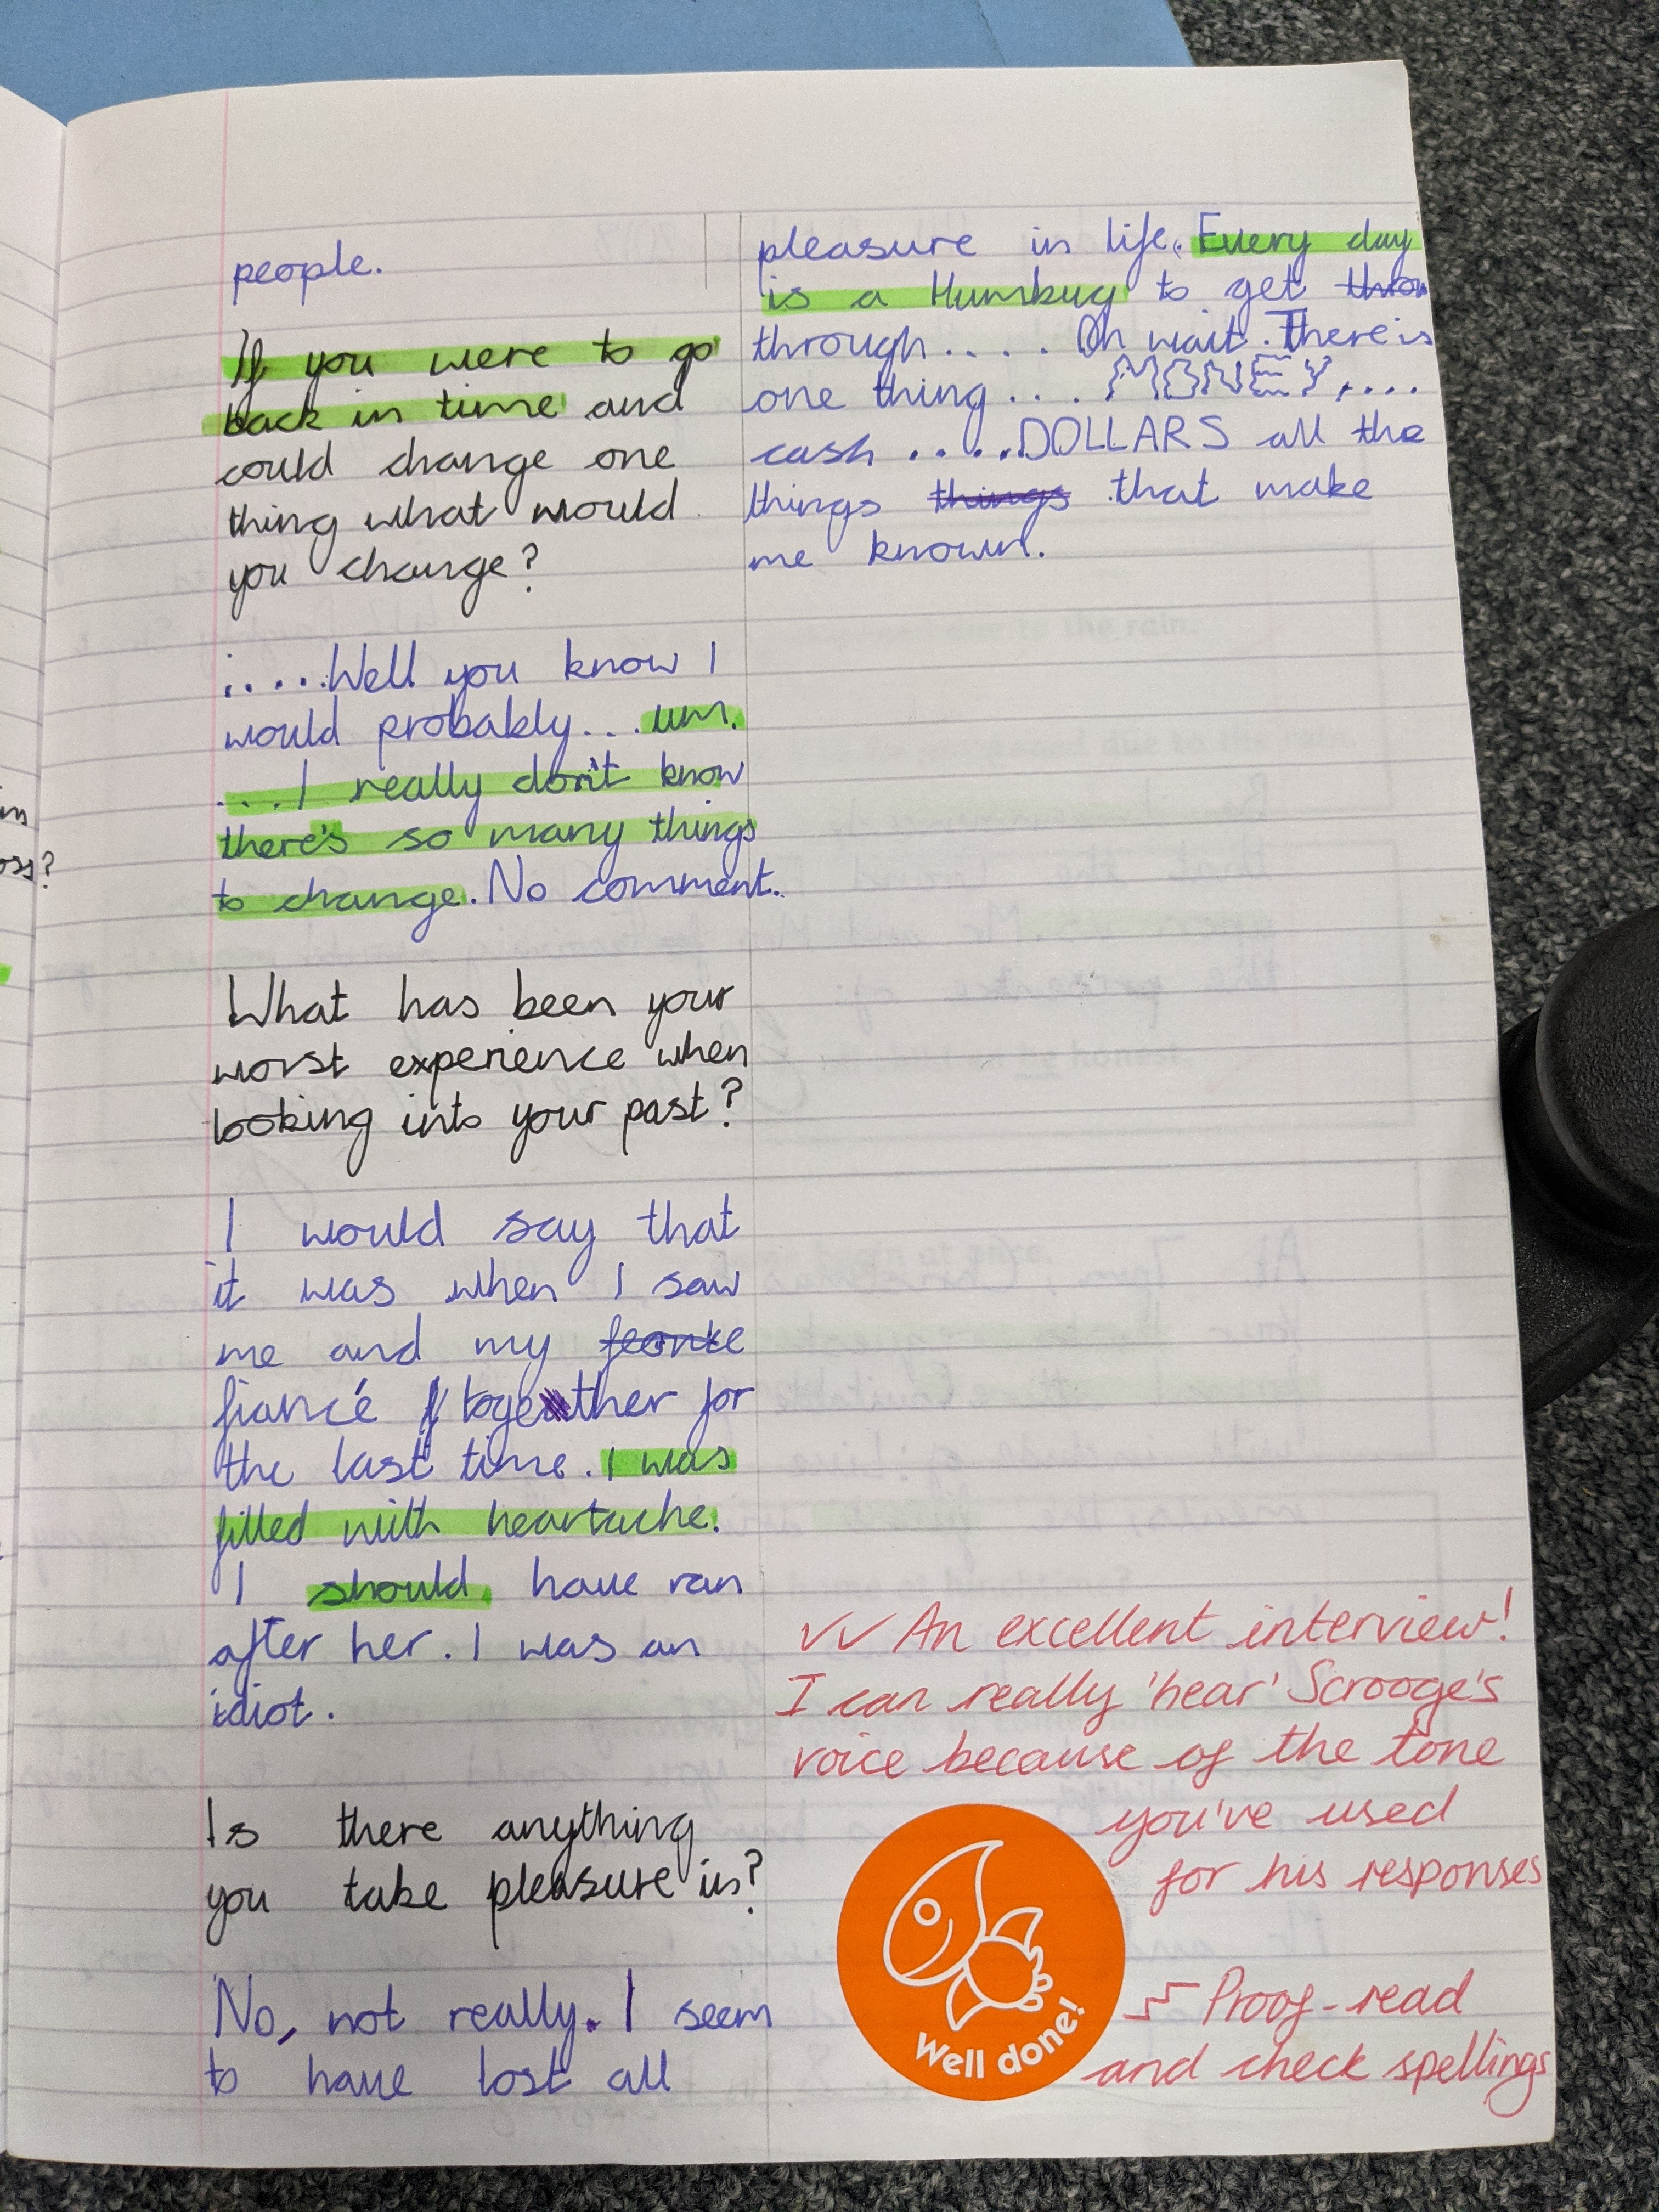 people.
If you were to go
back in time and
could change one
thing what would
you change?
.....Well you know I
would probably... um.
....I really don't know
there's so many things
to change. No comment.
What has been your
worst experience when
looking into your past?
I would say that
it was when I saw
me and my
fiancé together for
the last time. I was
filled with heartache.
I should have ran
after her. I was an
idiot.
Is there anything
you take pleasure in?
No, not really. I seem
to have lost all
pleasure in life. Every day
is a Humbug to get
through.... Oh wait. There is
one thing.... MONEY,....
cash.....DOLLARS all the
things things that make
me known.
✓✓ An excellent interview!
I can really 'hear' Scrooge's
voice because of the tone
you've used
for his responses
Proof-read
and check spellings
Well done!
oss?